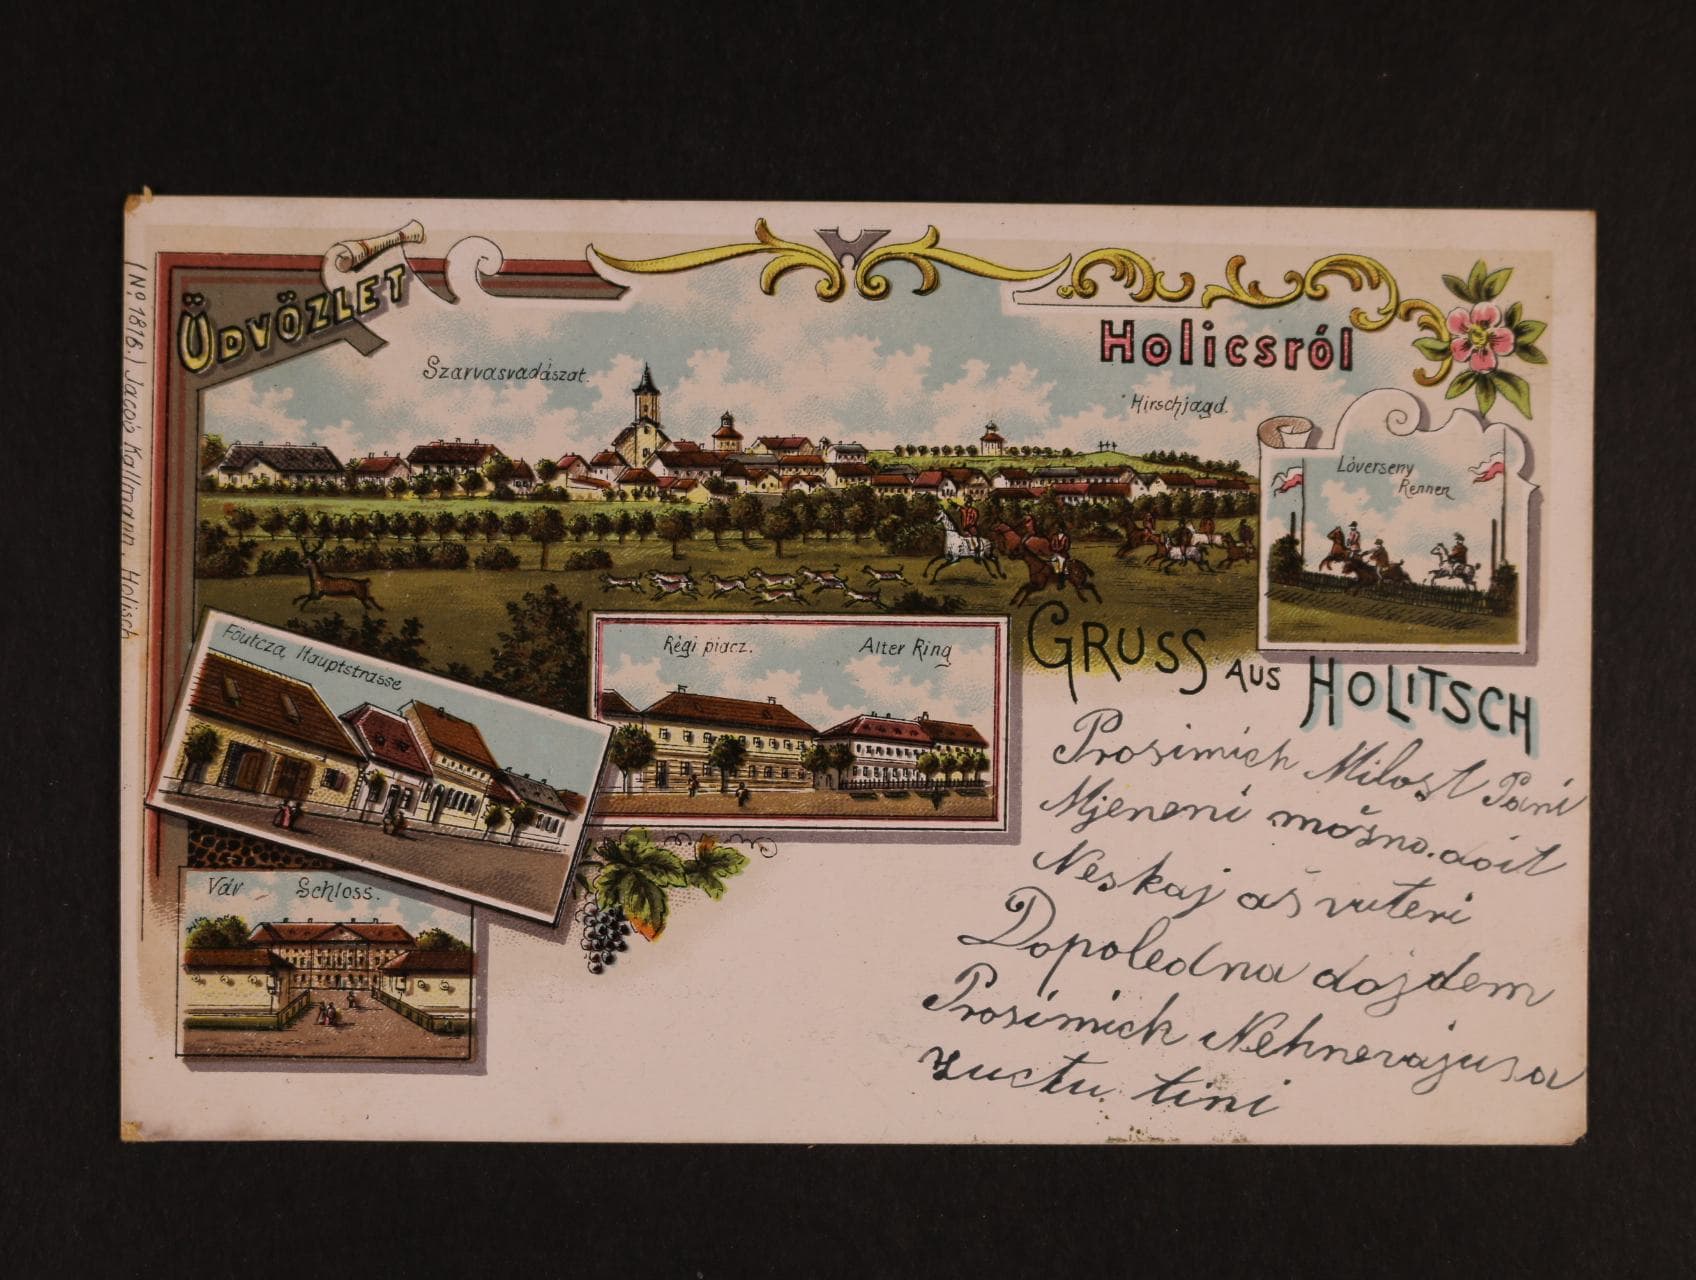 ÜDVÖZLET
Holicsról
Szarvasvadászat.
Hirschjagd.
Lóverseny
Rennen
GRUSS AUS HOLITSCH
Föutcza, Hauptstrasse
Régi piacz. Alter Ring
Vár Schloss.
(No. 1816.) Jacob Kallmann, Holisch
Prosimich Milost Pani
Mjeneni možno. doit
Neskaj aš vuteri
Dopoledna dojdem
Prosimich Nehnevaju sa
tini